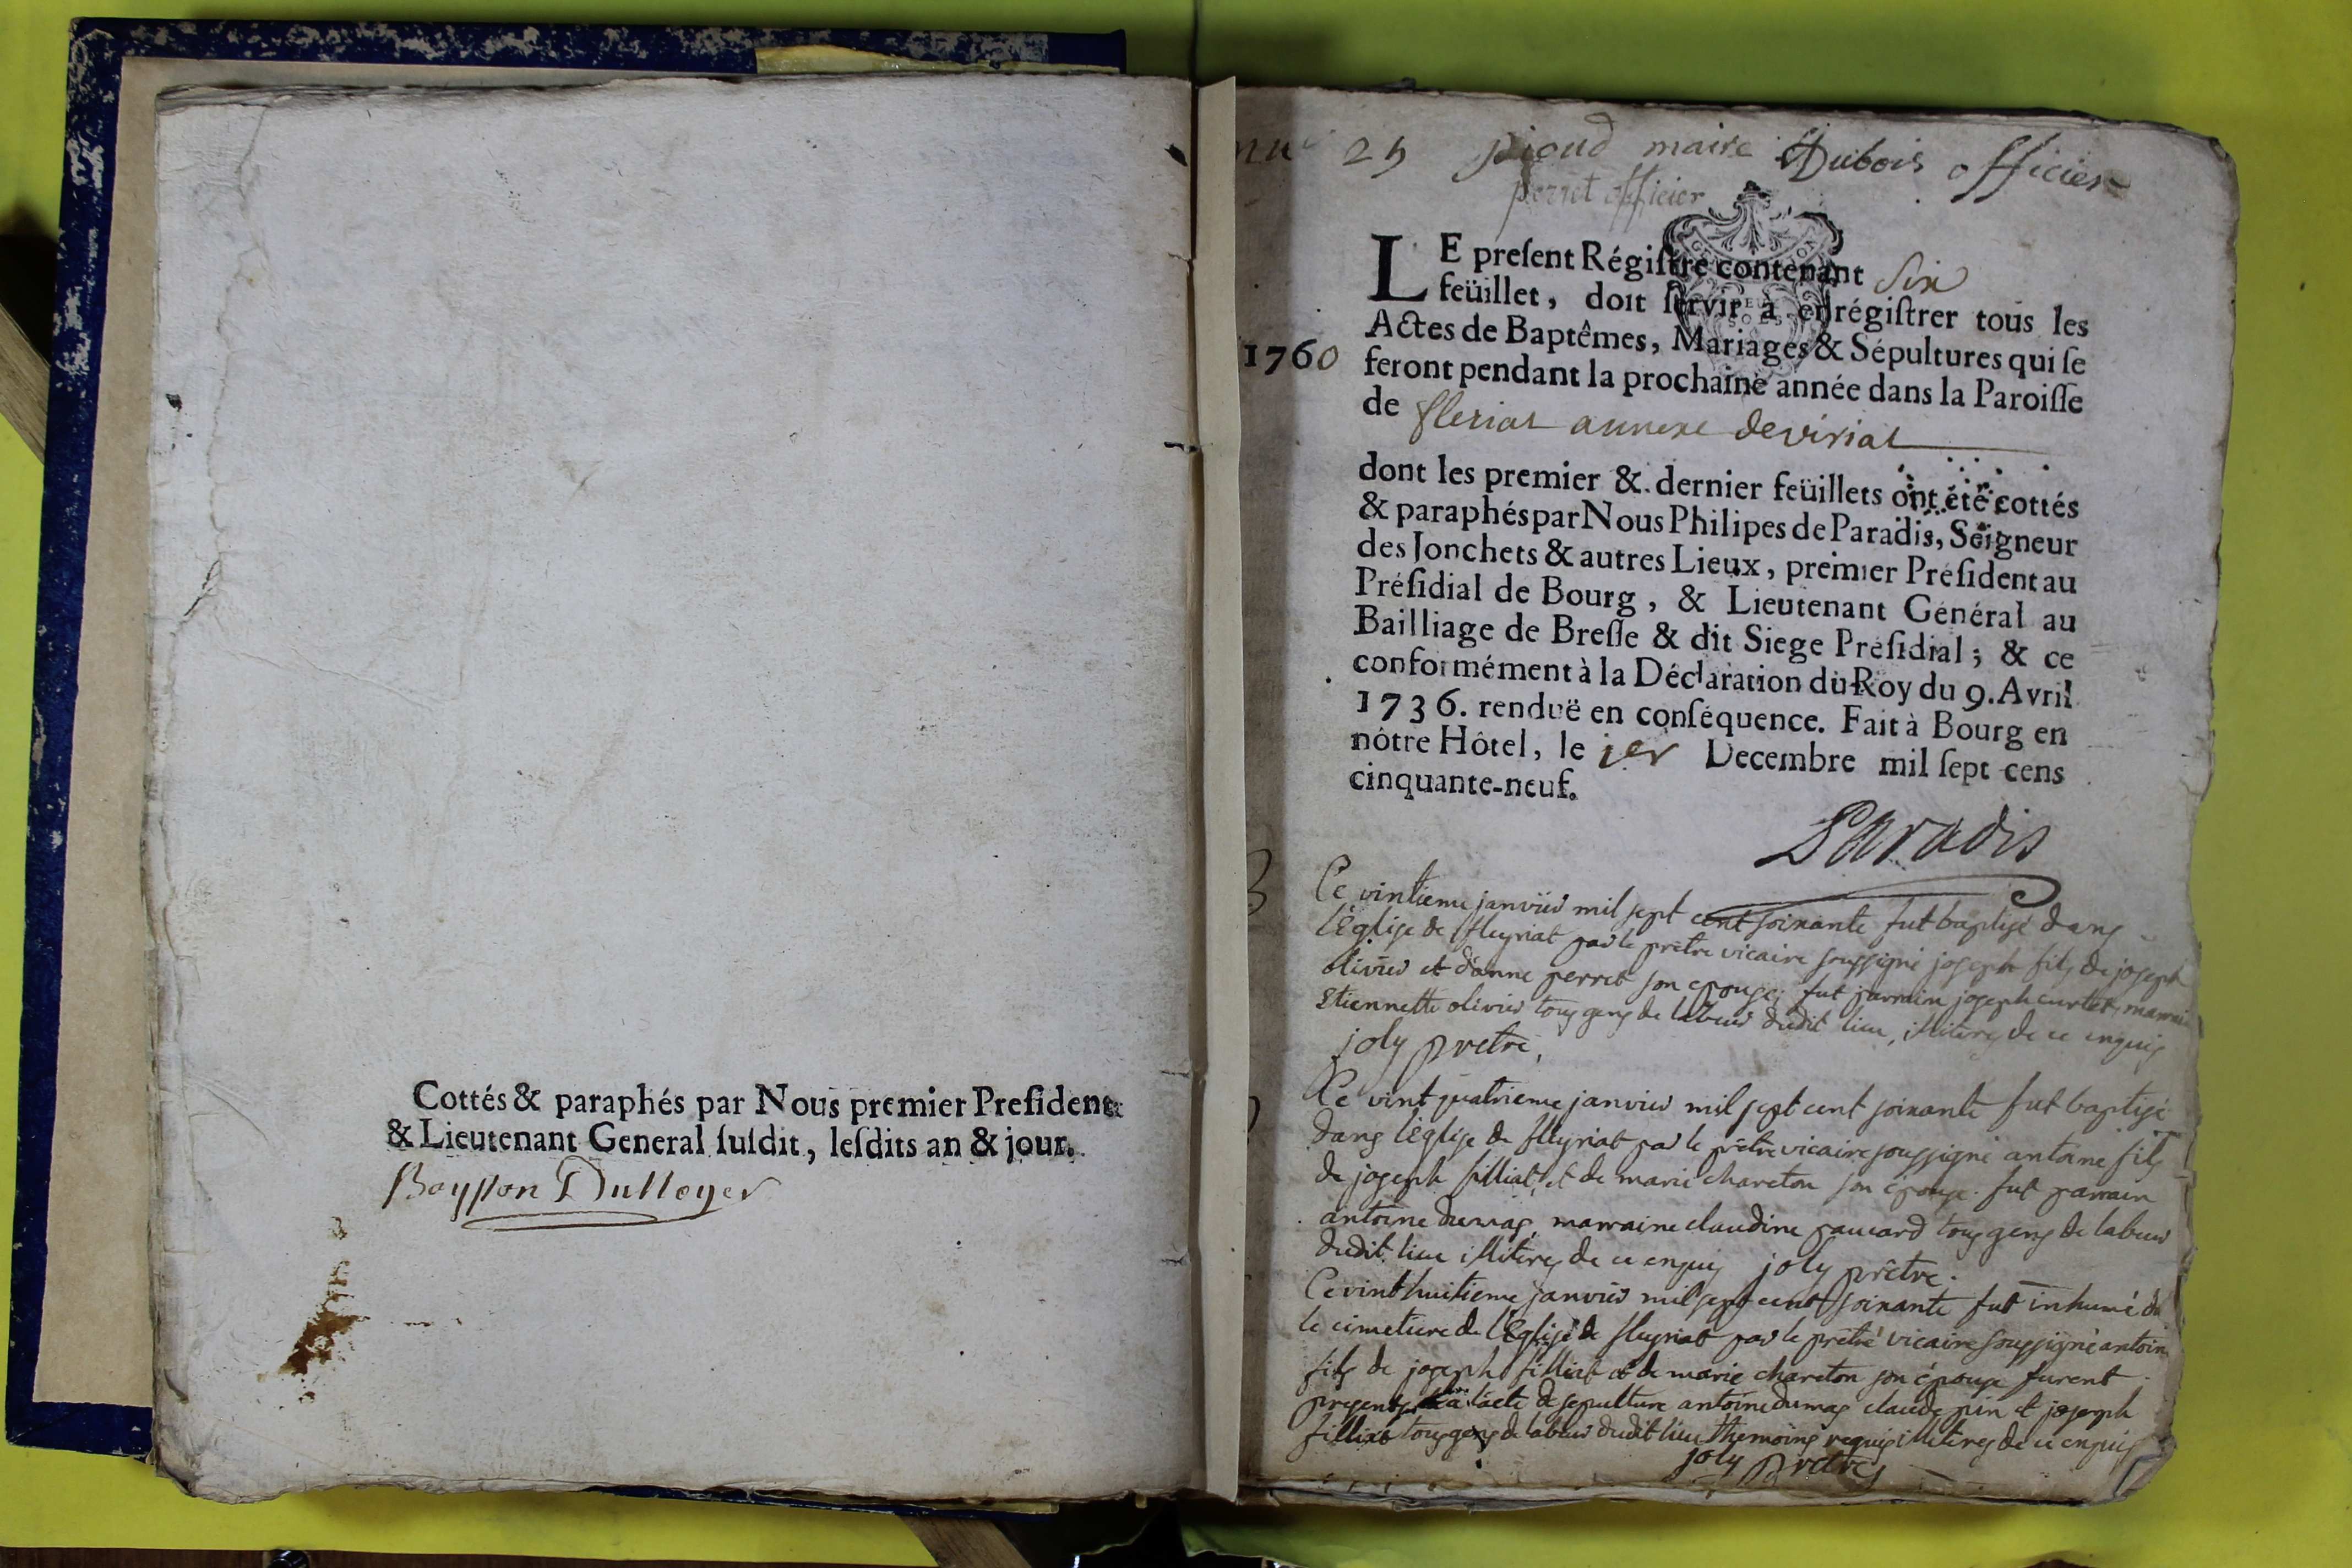 Cottés & paraphés par Nous premier Preſident
& Lieutenant General ſuſdit, leſdits an & jour.
25 pioud maire Dubois officier
perret officier
LE preſent Régiſtre contenant Six
feüillet, doit ſervir à enrégiſtrer tous les
Actes de Baptêmes, Mariages & Sépultures qui ſe
1760 feront pendant la prochaine année dans la Paroiſſe
de fleriat annexe de viriat
dont les premier & dernier feüillets ont été cottés
& paraphés par Nous Philipes de Paradis, Seigneur
des Jonchets & autres Lieux, premier Préſident au
Préſidial de Bourg, & Lieutenant Général au
Bailliage de Breſſe & dit Siege Préſidial; & ce
conformément à la Déclaration du Roy du 9. Avril
1736. renduë en conſéquence. Fait à Bourg en
nôtre Hôtel, le jer Decembre mil ſept cens
cinquante-neuf.
Paradis
Ce vintieme janvier mil sept cent soixante fut baptisé dans
l'Eglise de fleyriat par le prêtre vicaire soussigné joseph fils de joseph
olivier et d'anne perret son epouse, fut parrain joseph curtet, marrai
Etiennette olivier tous gens de labeur dudit lieu, illiteres de ce enquis
joly prêtre,
Ce vint quatrieme janvier mil sept cent soixante fut baptisé
dans l'Eglise de fleyriat par le prêtre vicaire soussigné antoine fils
de joseph filliat, et de marie chareton son épouse. fut parrain
antoine dumas, marraine claudine paucard tous gens de labeur
dudit lieu illiteres de ce enquis joly prêtre.
Ce vint huitieme janvier mil sept cent soixante fut inhumé da
le cimetiere de l'Eglise de fleyriat par le prêtre vicaire soussigné antoin
fils de joseph filliat et de marie chareton son épouse furent
presents a l'acte de sepulture antoine dumas claude pin et joseph
filliat tous gens de labeur dudit lieu themoins requis illiteres de ce enquis
joly prêtre